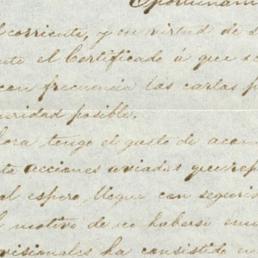 Oportunam
l corriente, y en virtud de s
te el Certificado á que se
con frecuencia las cartas p
uridad posible.
ora tengo el gusto de acom
ta acciones enviados que rep
al espero llegue con seguri
l motivo de no haberse em
visionales ha consistido